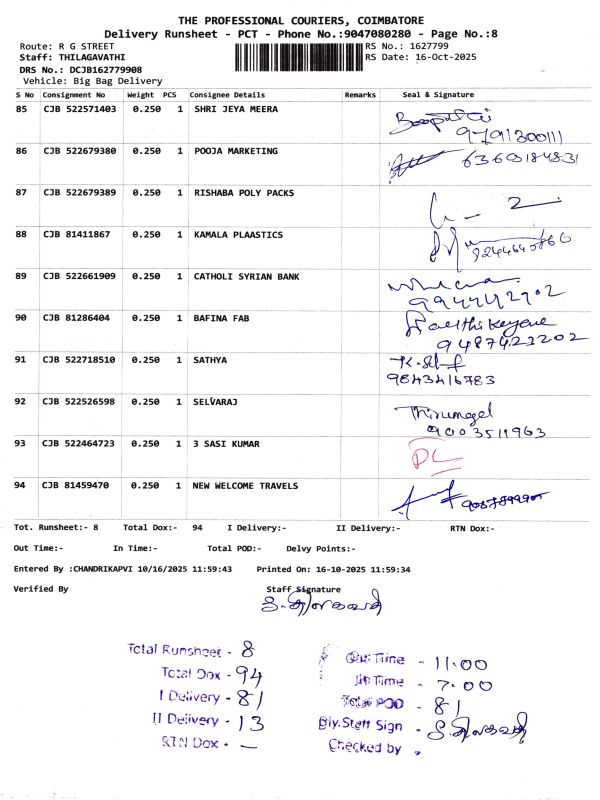 THE PROFESSIONAL COURIERS, COIMBATORE
Delivery Runsheet - PCT - Phone No.:9047080280 - Page No.:8
Route: R G STREET
RS No.: 1627799
Staff: THILAGAVATHI
RS Date: 16-Oct-2025
DRS No.: DCJB162779908
Vehicle: Big Bag Delivery
S No Consignment No Weight PCS Consignee Details Remarks Seal & Signature
85 CJB 522571403 0.250 1 SHRI JEYA MEERA
86 CJB 522679380 0.250 1 POOJA MARKETING
6360184831
87 CJB 522679389 0.250 1 RISHABA POLY PACKS
88 CJB 81411867 0.250 1 KAMALA PLAASTICS
89 CJB 522661909 0.250 1 CATHOLI SYRIAN BANK
90 CJB 81286404 0.250 1 BAFINA FAB
9487423202
91 CJB 522718510 0.250 1 SATHYA
9843416783
92 CJB 522526598 0.250 1 SELVARAJ
9003511963
93 CJB 522464723 0.250 1 3 SASI KUMAR
DL
94 CJB 81459470 0.250 1 NEW WELCOME TRAVELS
Tot. Runsheet:- 8 Total Dox:- 94 I Delivery:- II Delivery:- RTN Dox:-
Out Time:- In Time:- Total POD:- Delvy Points:-
Entered By :CHANDRIKAPVI 10/16/2025 11:59:43 Printed On: 16-10-2025 11:59:34
Verified By Staff Signature
Total Runsheet - 8
Total Dox - 94
I Delivery - 81
II Delivery - 13
RTN Dox - —
Out Time - 11.00
In Time - 7.00
Total POD - 81
Dly.Staff Sign -
Checked by